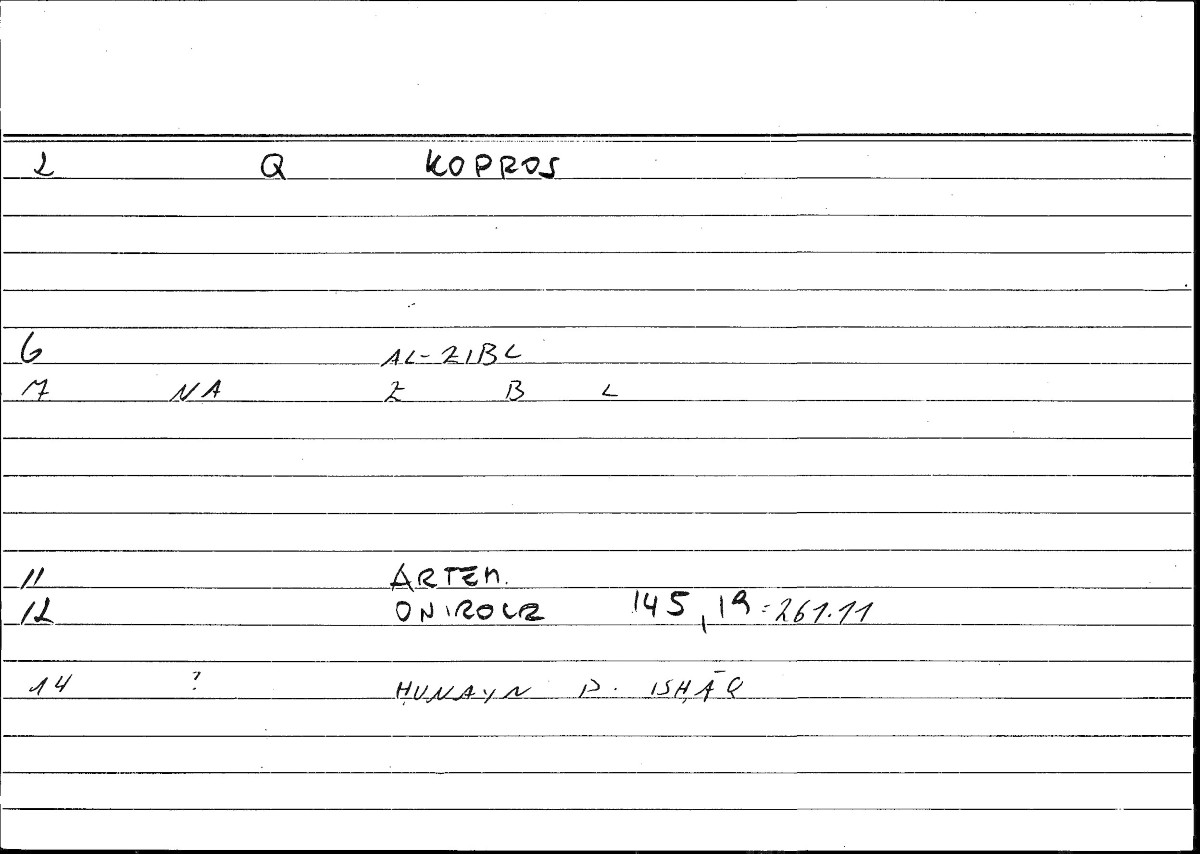 2 Q KOPROS
6 AL-ZIBL
7 NA Z B L
11 ARTEM.
12 ONIROCR 145,19 = 261.11
14 ? ḤUNAYN B. ISḤĀQ